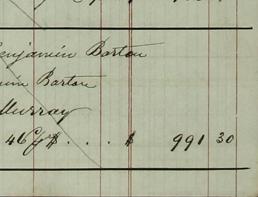 Benjamin Barton
Barton
Murray
46 $ . . . . $ 991 30